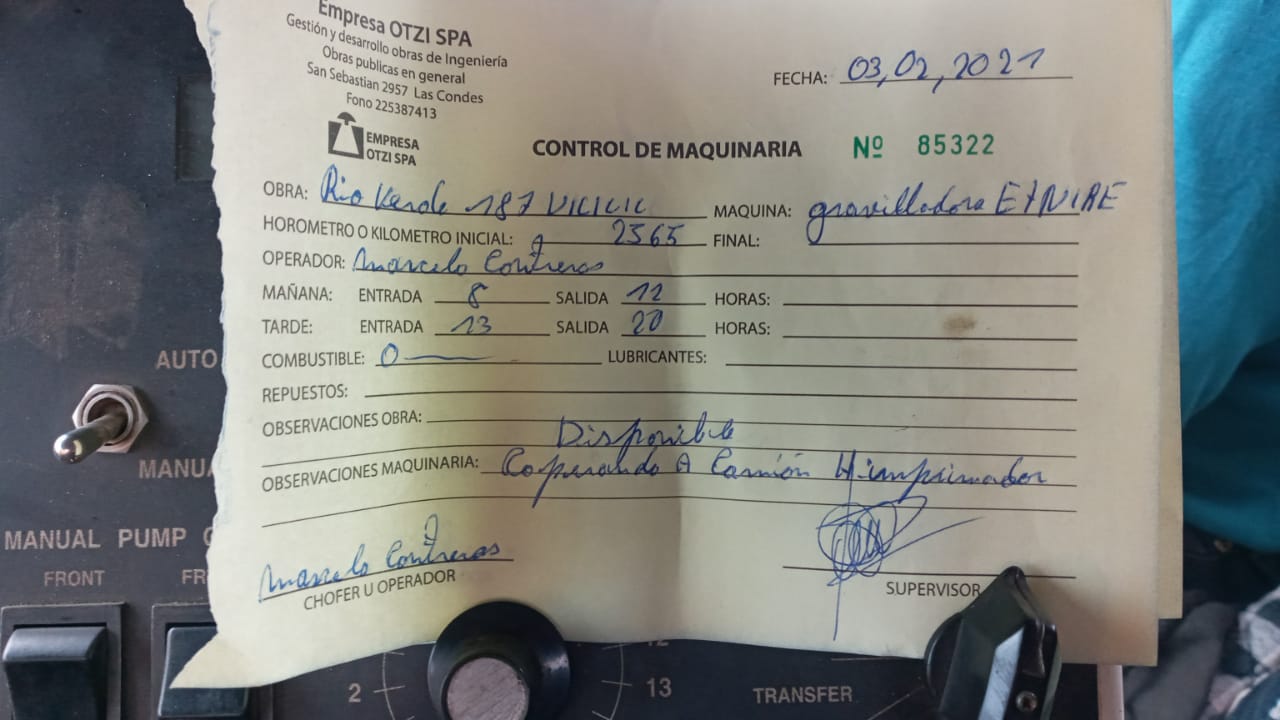 Empresa OTZI SPA
Gestión y desarrollo obras de Ingeniería
Obras publicas en general
San Sebastian 2957 Las Condes
Fono 225387413
EMPRESA
OTZI SPA
FECHA: 03,02,2021
CONTROL DE MAQUINARIA Nº 85322
OBRA: Rio Verde 187 MAQUINA: gravilladora
HOROMETRO O KILOMETRO INICIAL: 2565 FINAL:
OPERADOR: Marcelo Contreras
MAÑANA: ENTRADA 8 SALIDA 12 HORAS:
TARDE: ENTRADA 13 SALIDA 20 HORAS:
COMBUSTIBLE: 0 LUBRICANTES:
REPUESTOS:
OBSERVACIONES OBRA:
Disponible
OBSERVACIONES MAQUINARIA: Coperando A Camión imprimador
Marcelo Contreras
CHOFER U OPERADOR
SUPERVISOR
AUTO
MANUA
MANUAL PUMP
FRONT FR
2 12 13 TRANSFER